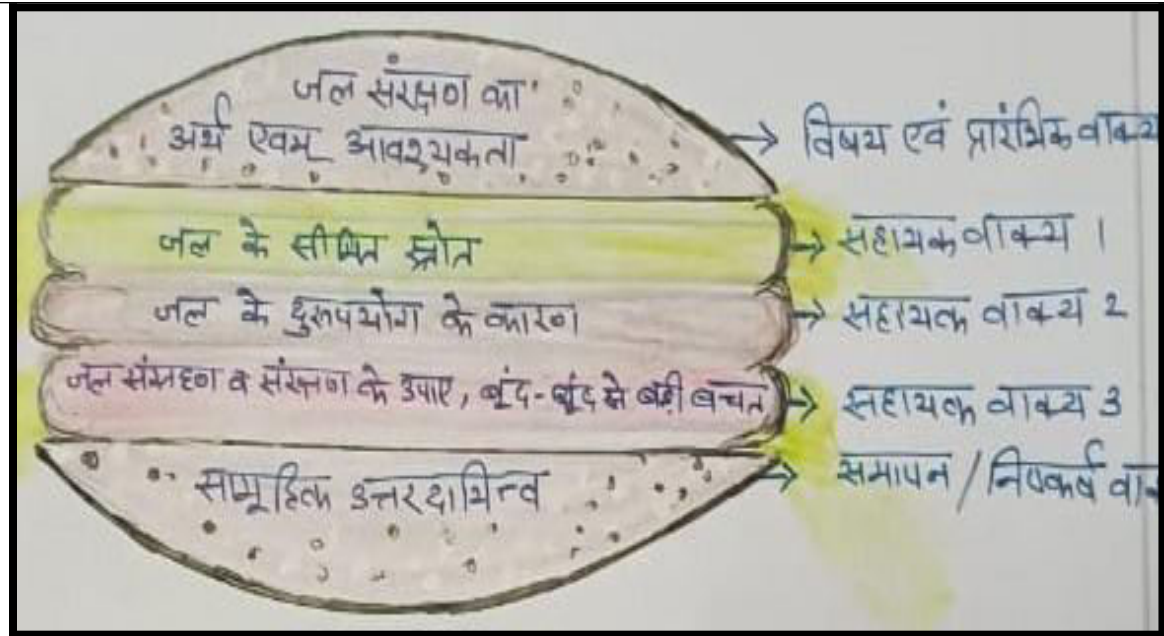 जल संरक्षण का
अर्थ एवम् आवश्यकता
→ विषय एवं प्रारंभिक वाक्य
जल के सीमित स्रोत
→ सहायक वाक्य 1
जल के दुरुपयोग के कारण
→ सहायक वाक्य 2
जल संग्रहण व संरक्षण के उपाए, बूंद-बूंद से बड़ी बचत
→ सहायक वाक्य 3
सामूहिक उत्तरदायित्व
→ समापन / निष्कर्ष